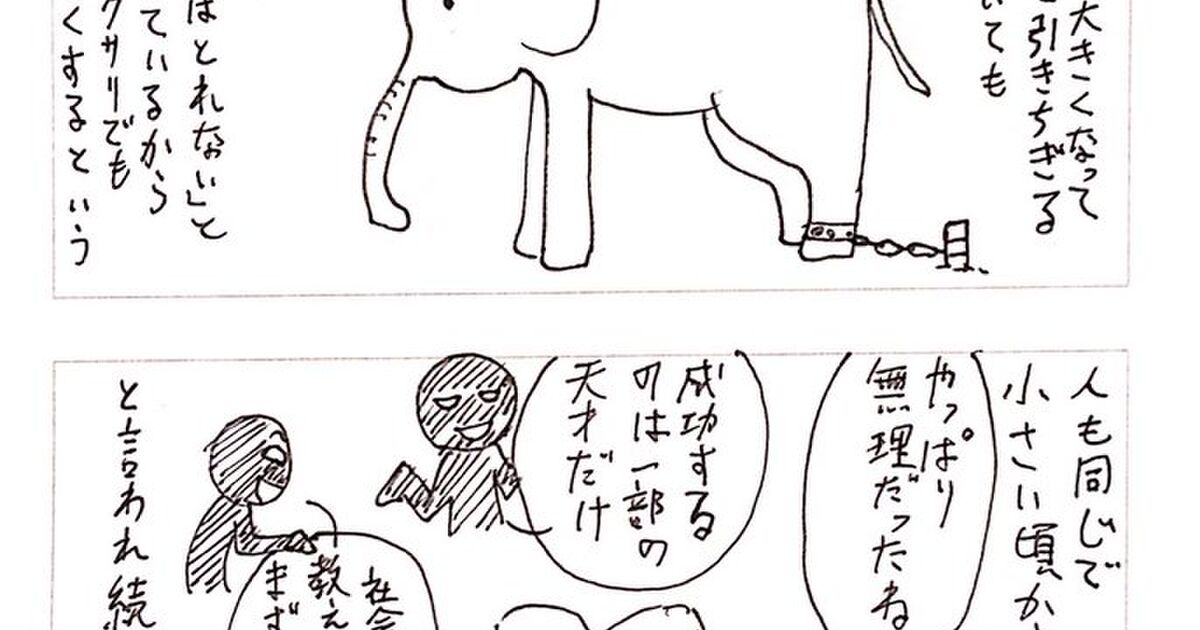 大きくなって
引きちぎる
いても
はとれない」と
ているから
クサリでも
くするという
人も同じで
小さい頃か
やっぱり
無理だったね
成功する
のは一部の
天才だけ
社会
教え
まず
と言われ続